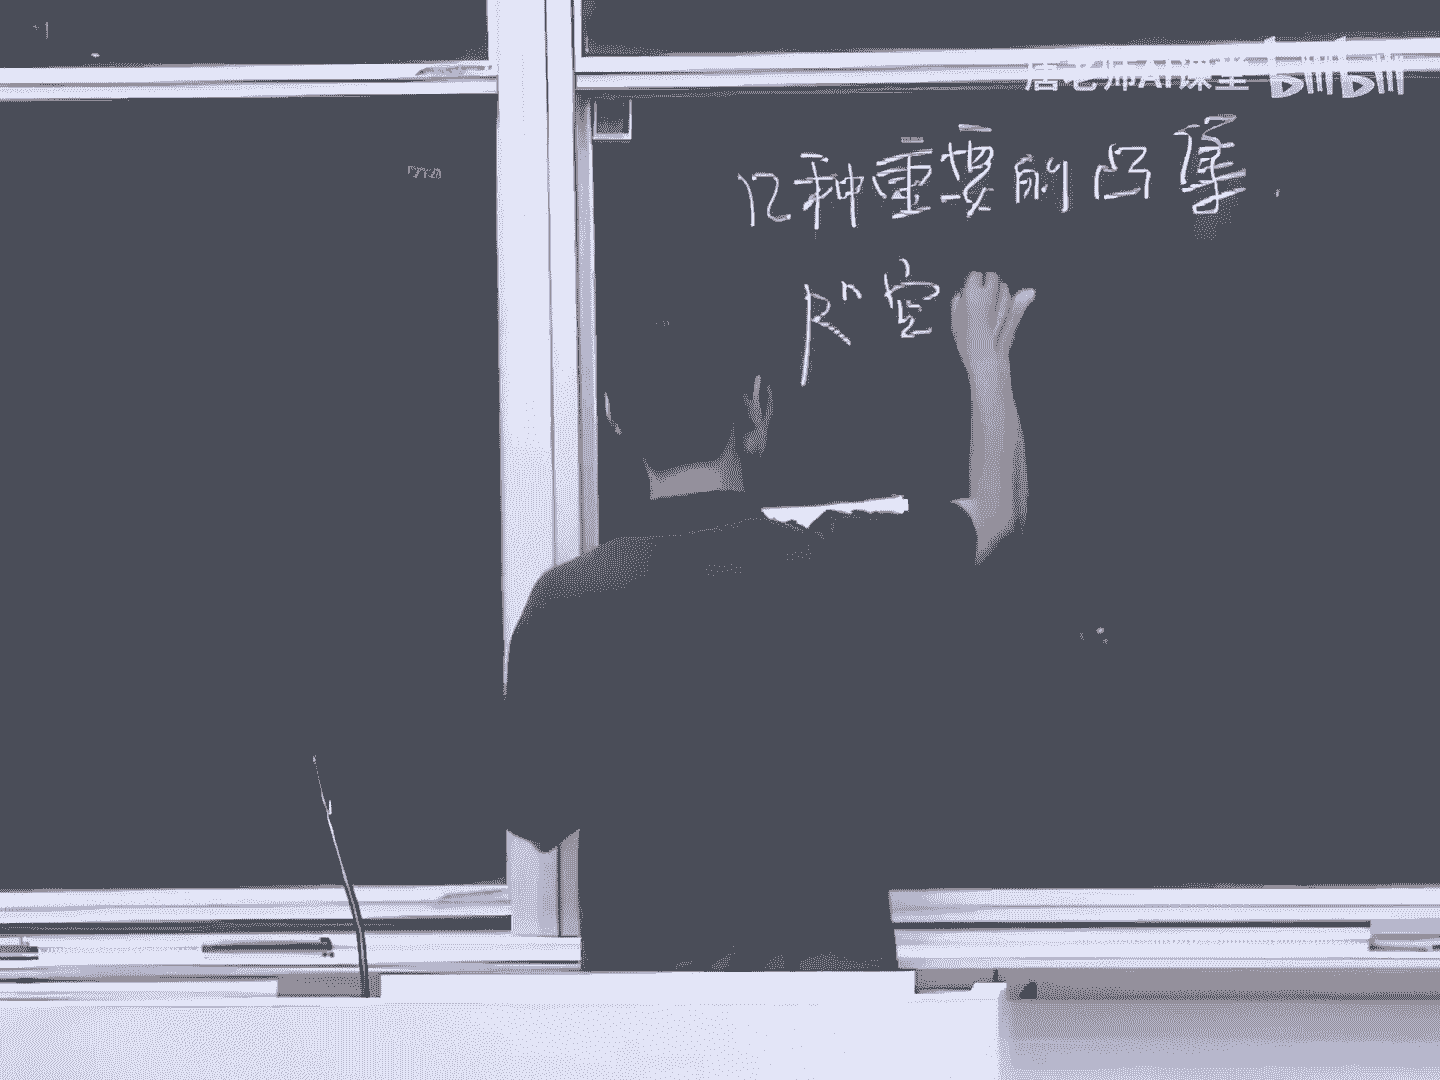 唐老师AI课堂 bilibili
几种重要的凸集.
Rⁿ 空